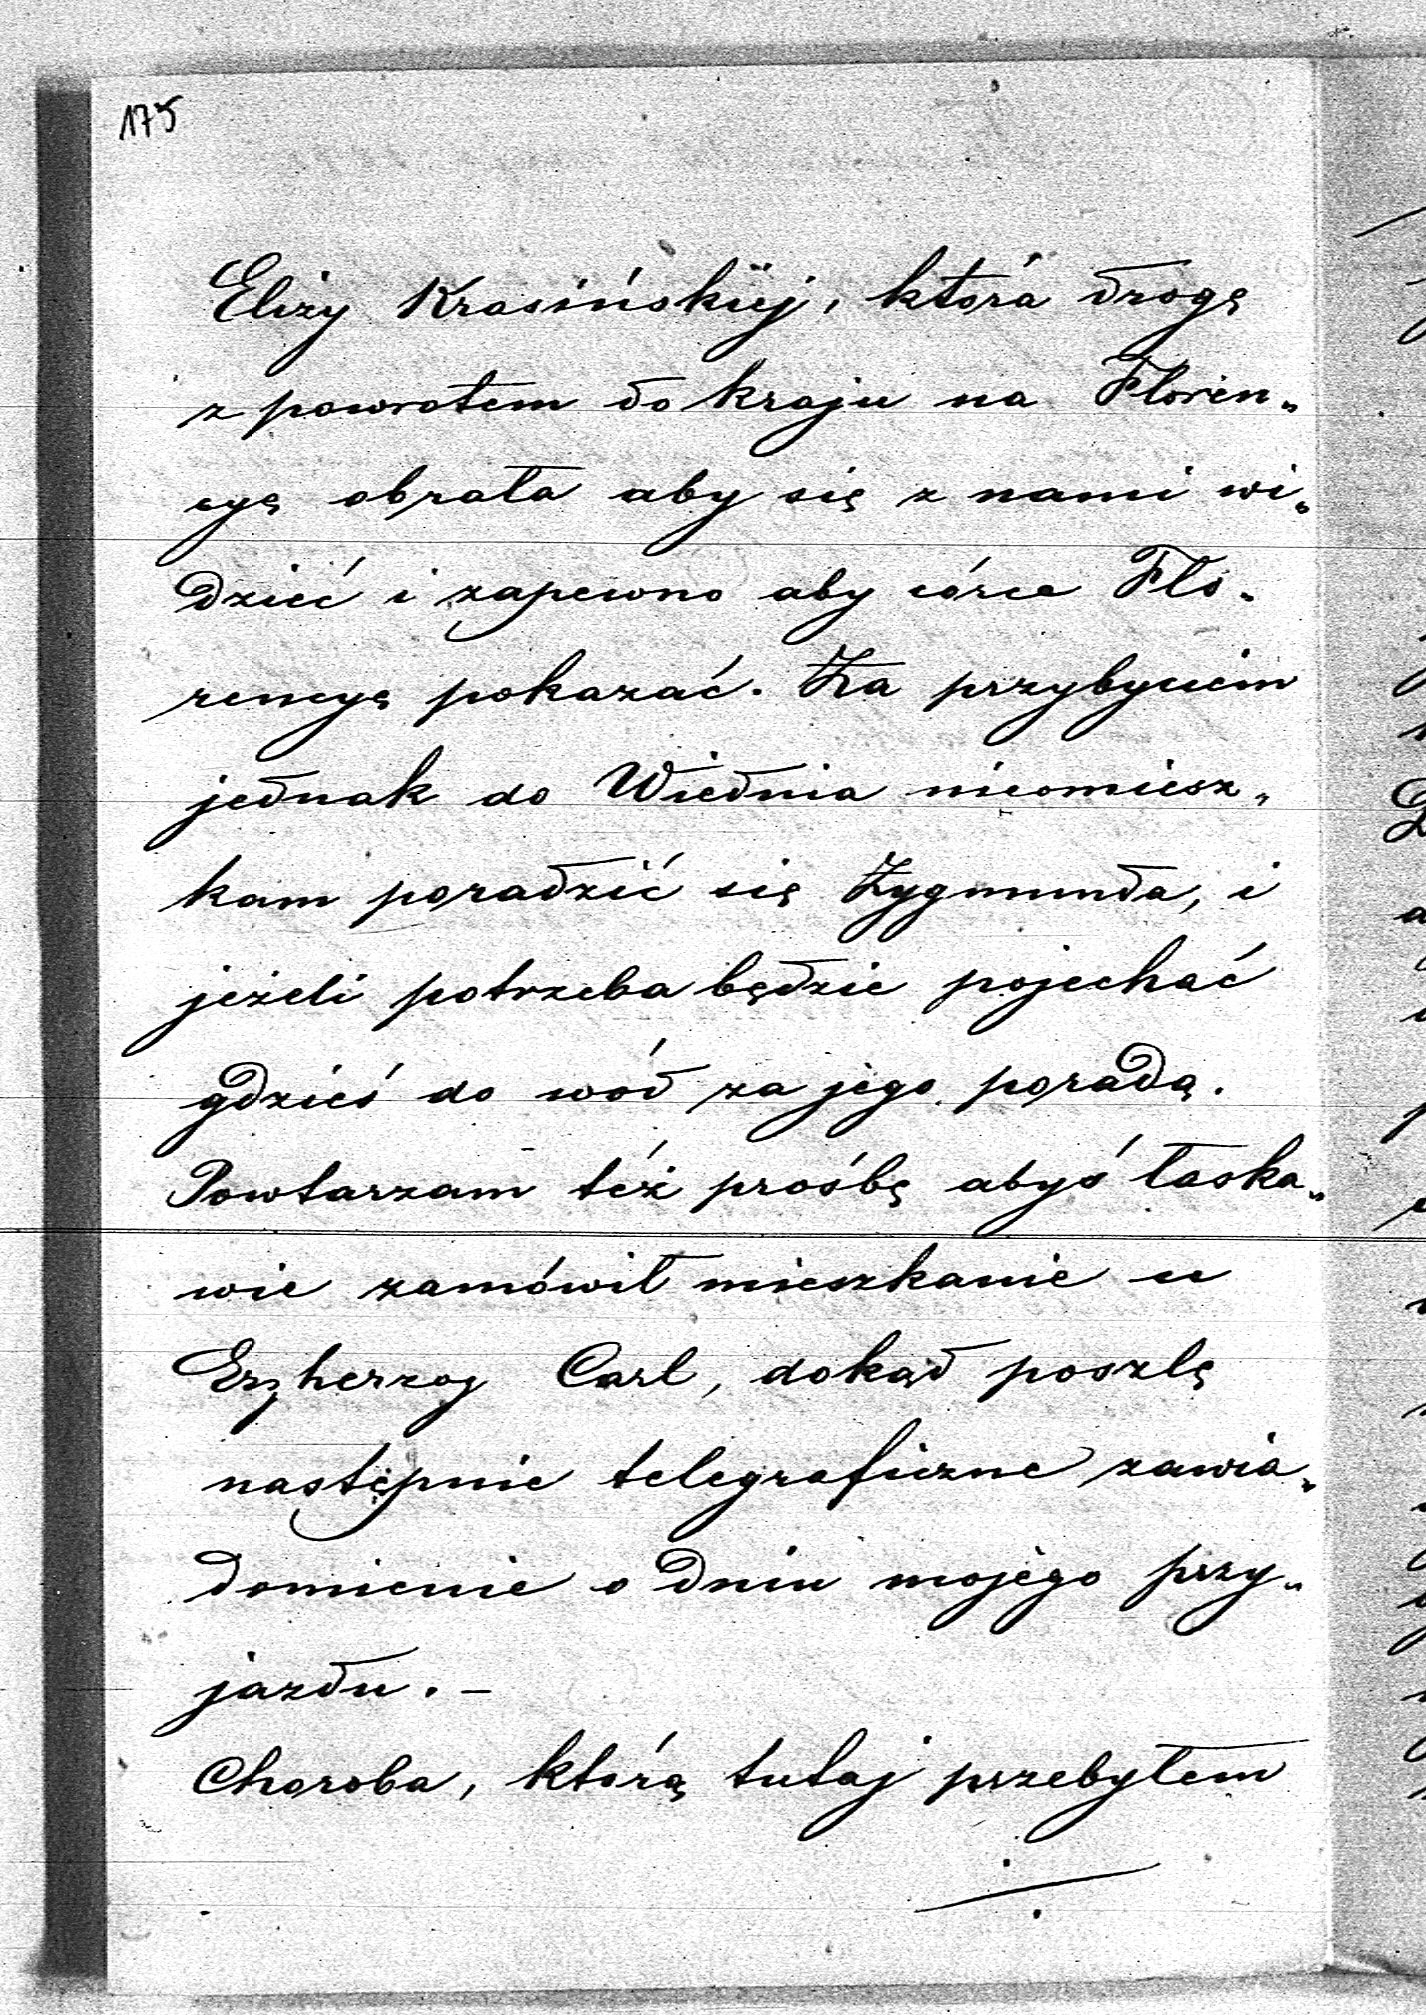 175
Elizy Krasińskiéj, która drogę
z powrotem do kraju na Floren„
cyę obrała aby się z nami wi„
dzieć i zapewno aby córce Flo„
rencyę pokazać. Za przybyciem
jednak do Wiednia nieomiesz„
kam poradzić się Zygmunda, i
jeżeli potrzeba będzie pojechać
gdzieś do wód za jego poradą.
Powtarzam też prośbę abyś łaska„
wie zamówił mieszkanie u
Erzherzog Carl, dokąd poszlę
następnie telegraficzne zawia„
domienie o dniu mojego przy„
jazdu. –
Choroba, którą tutaj przebyłem